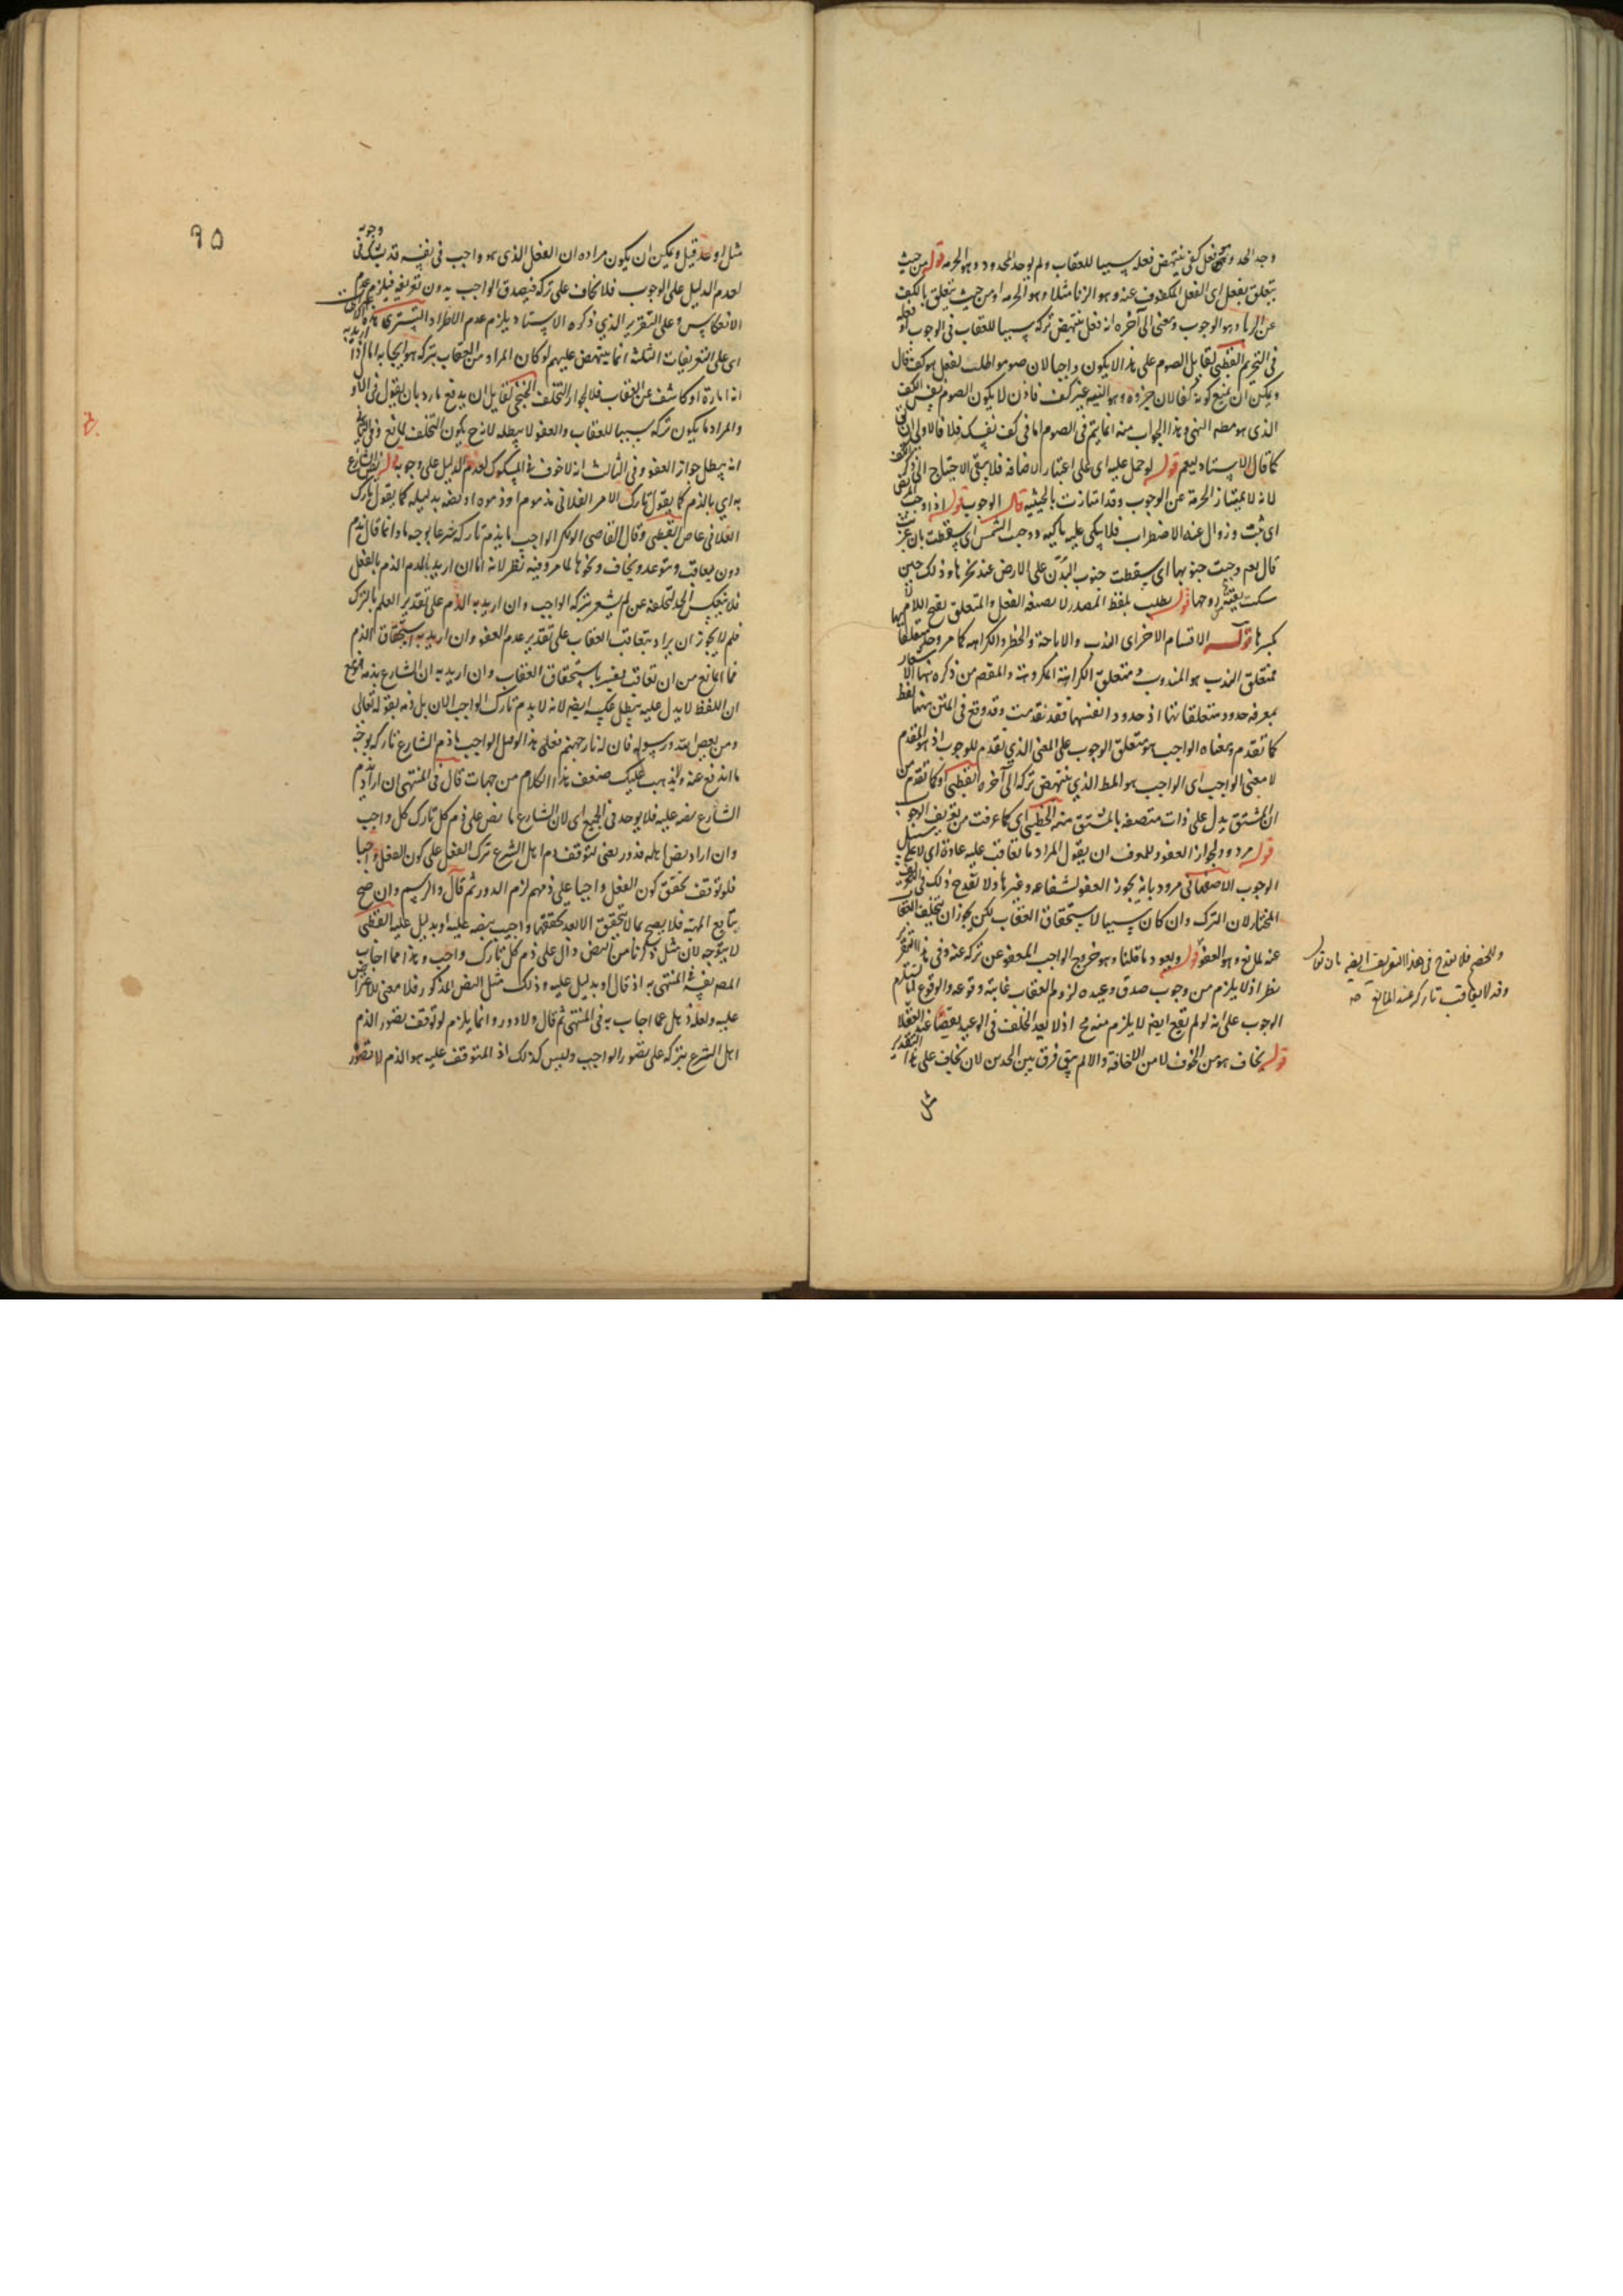 وجد الحد وهو فعل كف ينتهض فعله سببا للعقاب ولم يوجد المحدود وهو الحرمة قوله من حيث
يتعلق بفعل اى الفعل المكفوف عنه وهو الزنا مثلا وهو الحرمة او من حيث يتعلق بالكف
عن الزنا وهو الوجوب ومعنى الى آخره انه فعل ينتهض تركه سببا للعقاب فى الوجوب او فعله
فى التحريم القطبى لقايل الصوم على هذا لا يكون واجبا لان صوموا طلب لفعل هو كف قال
ويمكن ان يمنع كونه كفا لان جزؤه وهو النية غير كف فاذن لا يكون الصوم نفس الكف
الذى هو مطه النهى وهذا الجواب منه انما يتم فى الصوم اما فى كف نفسك فلا فالاولى ان
كما قال الاستاد يعم قوله لو حمل عليه اى على اعتبار الاضافة فلا يبقى الاحتياج الى ذكر
لانه لامتياز الحرمة عن الوجوب وقد امتازت بالحيثية قال الوجوب قوله اذا وجب
اى ثبت وزوال عنه الاضطراب فلا يبكى عليه باكية ووجبت الشمس اى سقطت بان غربت
قال نعم وجبت جنوبها اى سقطت جنوب البدن على الارض عند نحرها وذلك حين
سكنت بقية روحها قوله يطلب بلفظ المصدر لا بصيغة الفعل والمتعلق بفتح اللام
بكسرها قوله الاقسام الاخر اى الندب والاباحة والحظر والكراهة كما مر وحد متعلقاتها
فمتعلق الندب هو المندوب ومتعلق الكراهة المكروه والمقصم من ذكره بهذا
بمعرفة حدود متعلقاتها اذ حدود انفسها فقد تقدمت وقد وقع فى المتن ههنا لفظ
كما تقدم ومعناه الواجب هو متعلق الوجوب على المعنى الذى تقدم للوجوب اذ هو المتقدم
لا معنى الواجب اى الواجب هو المط الذى ينتهض تركه الى آخره القطبى او كما تقدم من
ان المشتق يدل على ذات متصفة بالمشتق منه الخطيبى اى كما عرفت من تعريف الوجوب
قوله مردود لجواز العفو وللمعرف ان يقول المراد ما يعاقب عليه عادة اى لا على سبيل
الوجوب الاصفهانى مردود بانه يجوز العفو لشفاعة وغيرها ولا يقدح ذلك فى التعريف
المختار لان الترك وان كان سببا لاستحقاق العقاب لكن يجوز ان يتخلف العقاب
عنه لمانع وهو العفو قوله ويعود ما قلنا وهو خروج الواجب المعفو عن تركه عنه وفى هذا التقرير
نظر اذ لا يلزم من وجوب صدق وعيده لزوم العقاب غايته وقوعه والوقوع لا يستلزم
الوجوب على انه لو لم يقع ايضه لا يلزم منه مح اذ لا يعد الخلف فى الوعيد نقصا عند العقلا
قوله يخاف هو من الخوف لا من الاخافة والا لم يبق فرق بين الحدين لان يخاف على هذا التقدير
مثل
وللخصم فلا يقدح فى هذا التعريف ايضه بان يقال
وقد لا يعاقب تاركه عند المانع صه
٩٥
مثل اوعد قيل ويمكن ان يكون مراده ان الفعل الذى هو واجب فى نفسه قد يشك فى وجوبه
لعدم الدليل على الوجوب فلا يخاف على تركه فيصدق الواجب بدون تعريفه فيلزم عدم
الانعكاس وعلى التقرير الذى ذكره الاستاد يلزم عدم الاطراد التسترى هذه
اى على التعريفات الثلثة انما ينتهض عليهم لو كان المراد من العقاب بتركه هو ايجابه اما اذا اريد به
انه امارة او كاشف عن العقاب فلا لجواز التخلف الخنجى لقايل ان يدفع ما رد بان يقول فى الاول
والمراد ما يكون تركه سببا للعقاب والعفو لا يبطله لانه ح يكون التخلف لمانع وفى الثانى
انه يبطل جواز العفو وفى الثالث انه لا خوف فى المشكوك لعدم الدليل على وجوبه قوله نص الشارع
به اى بالذم كما يقول تارك الامر الفلانى مذموم او ذموه او نصه بدليله كما يقول تارك
الفلانى عاص القطبى وقال القاضى ابو بكر الواجب ما يذم تاركه شرعا بوجه ما وانما قال يذم
دون يعاقب ومتوعد ويخاف ونحوها لما مر وفيه نظر لانه اما ان اريد بالذم الذم بالفعل
فلا ينعكس الحد لتخلفه عن لم يشعر بتركه الواجب وان اريد به الذم على تقدير العلم بالترك
فلم لا يجوز ان يراد بيعاقب العقاب على تقدير عدم العفو وان اريد به استحقاق الذم
فما المانع من ان يعاقب يفسر باستحقاق العقاب وان اريد به ان الشارع يذمه فمع
ان اللفظ لا يدل عليه يبطل عكسه ايضه لانه لا يذم تارك الواجب الان بل ذمه بقوله تعالى
ومن يعص الله ورسوله فان له نار جهنم فعلى هذا الوصل الواجب ما ذم الشارع تاركه بوجه
ما اندفع عنه ولا يذهب عليك ضعف هذا الكلام من جهات قال فى المنتهى ان اراد ذم
الشارع نصه عليه فلا يوجد فى الجميع اى لان الشارع ما نص على ذم كل تارك كل واجب
وان اراد نص اهله فدور يعنى لتوقف ذم اهل الشرع ترك الفعل على كون الفعل واجبا
فلو توقف تحقق كون الفعل واجبا على ذمهم لزم الدور ثم قال والرسم وان صح
بتابع المهية فلا يصح بما لا يتحقق الا بعد تحققها واجيب بنصه عليه او بدليل عليه القطبى
لا يتوجه لان مثل ما ذكرنا من النص دال على ذم كل تارك واجب وهذا مما اجاب
المصه نفسه فى المنتهى به اذ قال او بدليل عليه وذلك مثل النص المذكور فلا معنى للاعتراض
عليه ولعله ذهل عما اجاب به فى المنتهى ثم قال ولا دور وانما يلزم لو توقف تصور الذم
اهل الشرع بتركه على تصور الواجب وليس كذلك اذ المتوقف عليه هو الذم لا تصور